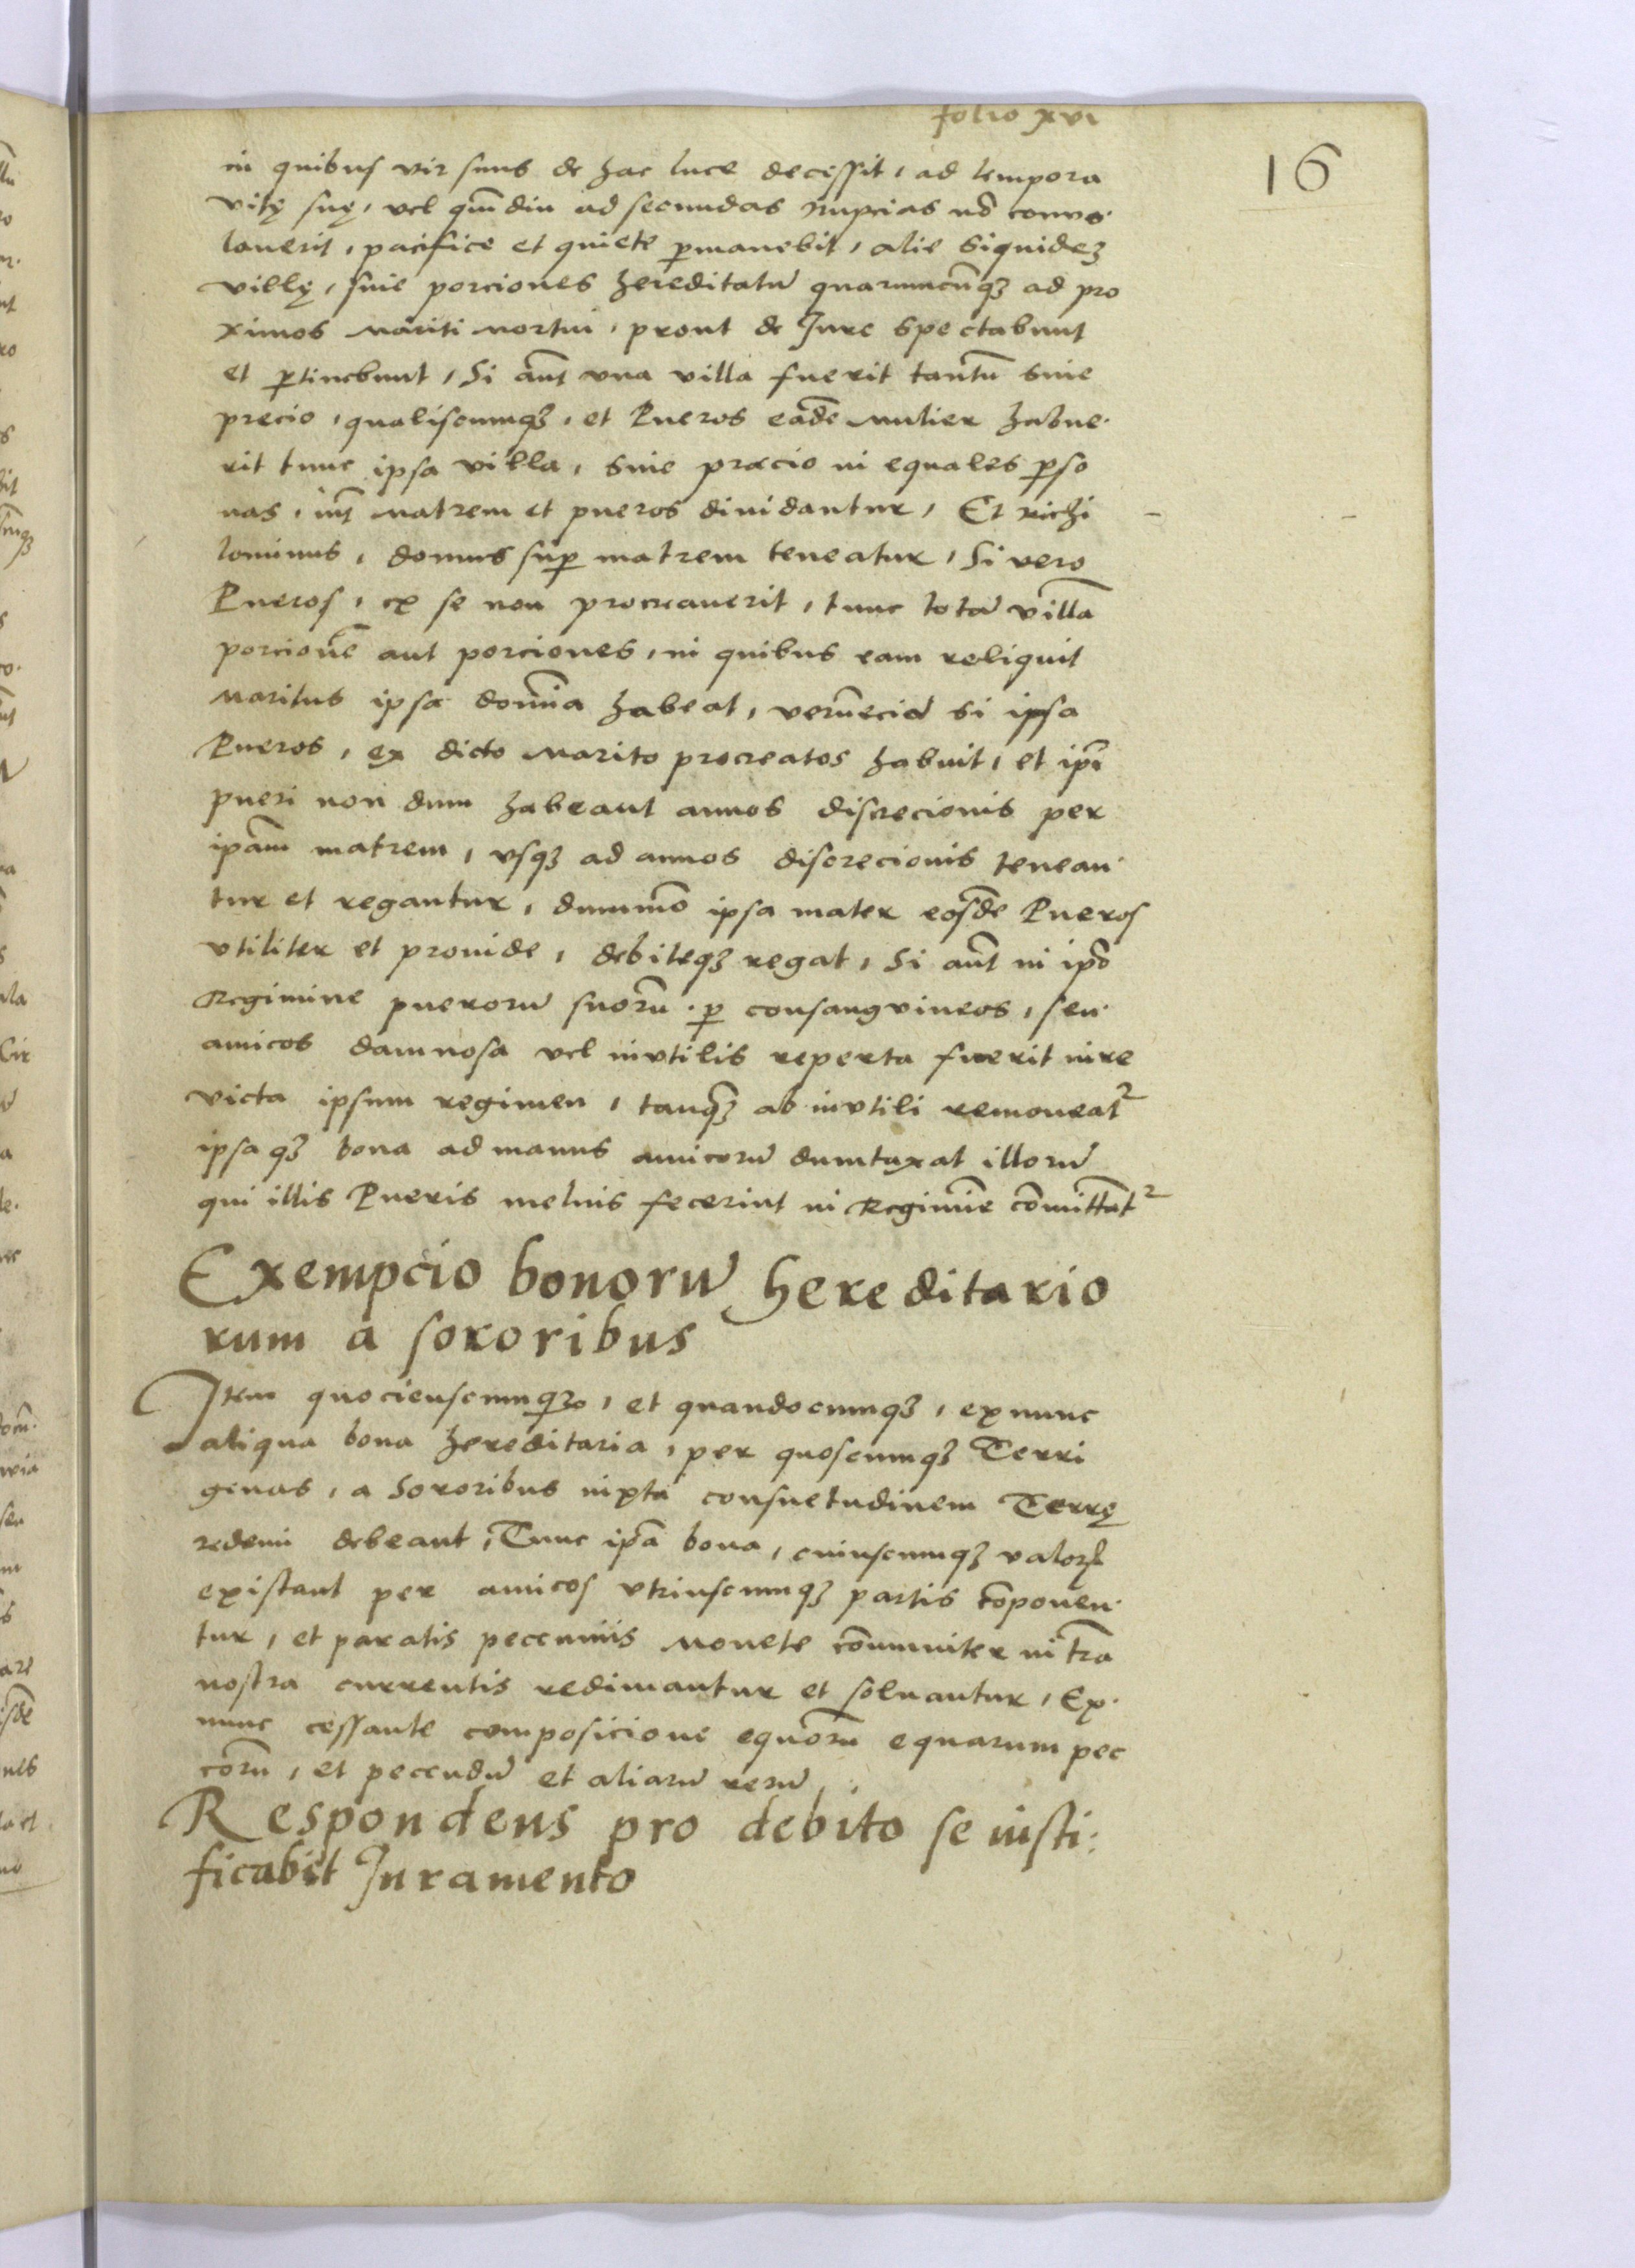 folio xvi
16
in quibus vir suus de hac luce decessit, ad tempora
vitę suę, vel qm̄diu ad secundas Nupcias nō convo·
laverit, pacifice et quiete ꝑmanebit, alie siquideꝫ
villę, siue porciones hereditatū quarumcūqꝫ ad pro
ximos mariti mortui, prout de Jure spectabunt
et ꝑtinebunt, Si aūt vna villa fuerit tantū siue
precio, qualiscumqꝫ, et Pueros eadē mulier habue·
rit tunc ipsa villa, siue præcio in equales ꝑso
nas, int̄ matrem et pueros diuidantur, Et nichi
lominus, domus suꝑ matrem teneatur, Si vero
Pueros, ex se non procreauerit, tunc totā villā
porcionē aut porciones, in quibus eam reliquit
Maritus ipsa domīa habeat, verūeciā si ipsa
Pueros, ex dicto Marito procreatos habuit, et ipī
pueri non dum habeant annos discrecionis per
ipām matrem, vsqꝫ ad annos discrecionis tenean·
tur et regantur, dummō ipsa mater eosdē Pueros
vtiliter et prouide, debiteqꝫ regat, Si aūt in ipō
Regimine puerorū suorū · ꝑ consangvineos, seu·
amicos damnosa vel invtilis reperta fuerit iure
victa ipsum regimen, tanqꝫ ab invtili remoueat᷑
ipsaqꝫ bona ad manus amicorū dumtaxat illorū
qui illis Pueris melius fecerint in Regimīe cōmittāt᷑
Exempcio bonorū hereditario
rum a sororibus
Item quocienscumqꝫ, et quandocumqꝫ, ex nunc
aliqua bona hereditaria, per quoscumqꝫ Terri
genas, a Sororibus iuxta consuetudinem Terrę
redemi debeant, Tunc ipā bona, cuiuscumqꝫ valorꝭ
existant per amicos vtriuscumqꝫ partis cōponen·
tur, et paratis peccuniis Monete cōmmuniter in trā
nostra currentis redimantur et soluantur, Ex·
nunc cessante composicione equorū equarum pec
corū, et peccudū et aliarū rerū,
Respondens pro debito se iusti:
ficabit Juramento